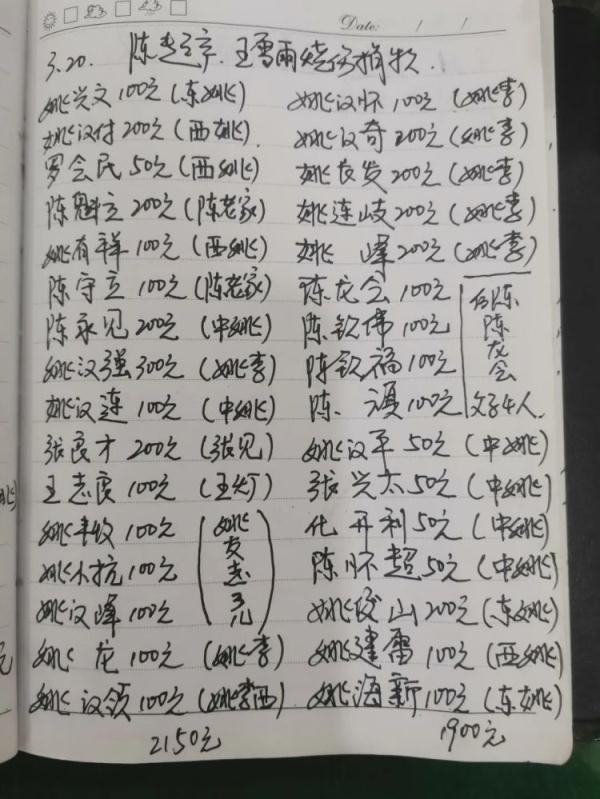 Date: / /
3.20. 陈超立 王雪雨 捐款
姚兴文 100元 (东姚)
姚汉付 200元 (西姚)
罗会民 50元 (西姚)
陈魁立 200元 (陈老家)
姚有祥 100元 (西姚)
陈守立 100元 (陈老家)
陈永见 200元 (中姚)
姚汉强 300元 (姚李)
姚汉莲 100元 (中姚)
张良才 200元 (张见)
王志良 100元 (王灯)
姚丰收 100元
姚小抗 100元
姚汉峰 100元
(姚友志3儿)
姚龙 100元 (姚李)
姚汉领 100元 (姚李西)
2150元
姚汉怀 100元 (姚李)
姚汉奇 200元 (姚李)
姚长发 200元 (姚李)
姚连岐 200元 (姚李)
姚峰 200元 (姚李)
陈龙会 100元
陈钦伟 100元
陈钦福 100元
陈 100元
陈陈龙会
父子4人
姚汉平 50元 (中姚)
张兴太 50元 (中姚)
化开利 50元 (中姚)
陈怀超 50元 (中姚)
姚山 200元 (东姚)
姚建雷 100元 (西姚)
姚海新 100元 (东姚)
1900元